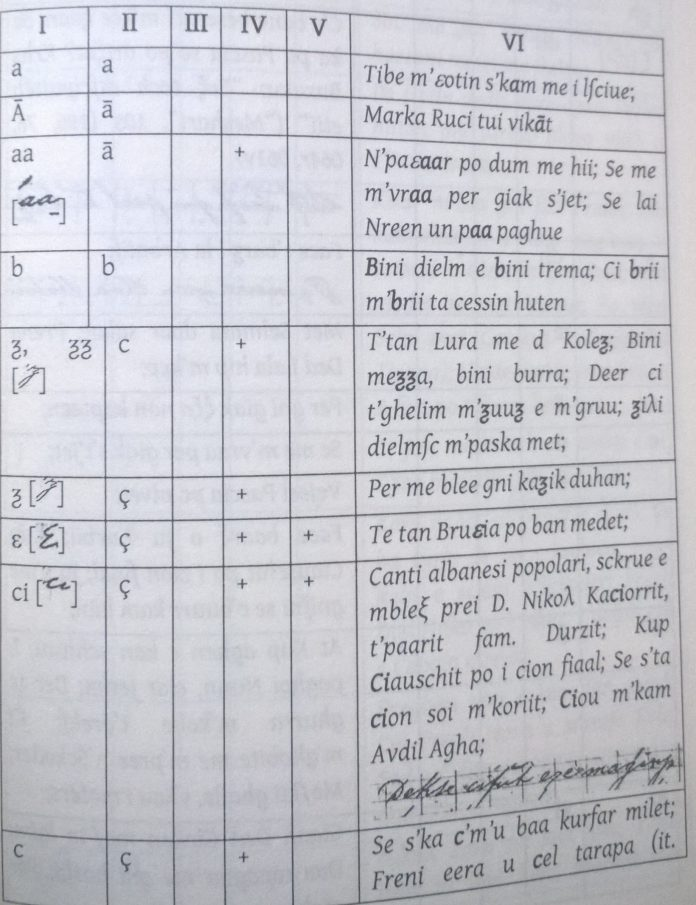 I II III IV V VI
a a Tibe m'ɛotin s'kam me i lſciue;
Ā ā Marka Ruci tui vikāt
aa ā + N'paɛaar po dum me hii; Se me
[aa] m'vraa per giak s'jet; Se lai
Nreen un paa paghue
b b Bini dielm e bini trema; Ci brii
m'brii ta cessin huten
ʒ, ʒʒ c + T'tan Lura me d Koleʒ; Bini
[ʒ] meʒʒa, bini burra; Deer ci
t'ghelim m'ʒuuʒ e m'gruu; ʒiλi
dielmſc m'paska met;
ʒ [ʒ] ç + Per me blee gni kaʒik duhan;
ε [ξ] ç + + Te tan Bruɛia po ban medet;
ci [ci] ç + Canti albanesi popolari, sckrue e
mbleξ prei D. Nikoλ Kaciorrit,
t'paarit fam. Durzit; Kup
Ciauschit po i cion fiaal; Se s'ta
cion soi m'koriit; Ciou m'kam
Avdil Agha;
c ç + Se s'ka c'm'u baa kurfar milet;
Freni eera u cel tarapa (it.